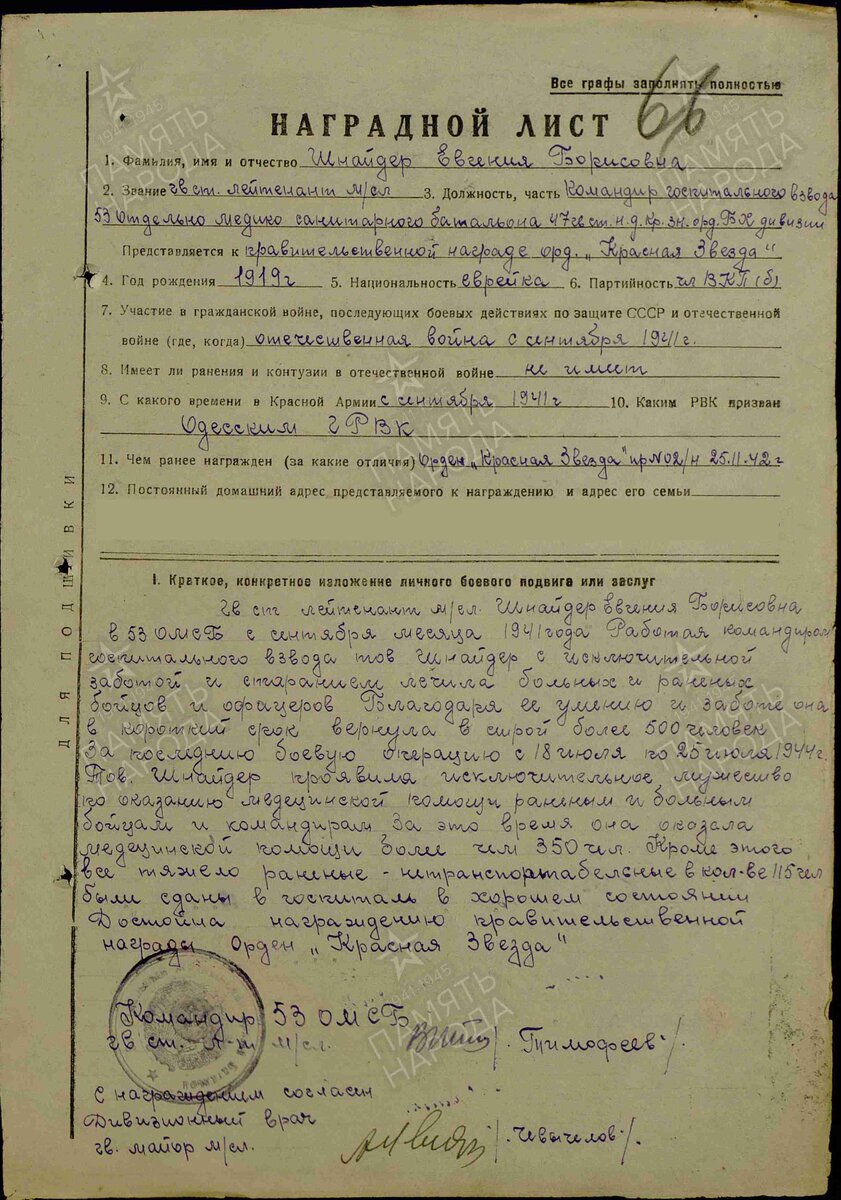 Все графы заполнять полностью
66
НАГРАДНОЙ ЛИСТ
1. Фамилия, имя и отчество Шнайдер Евгения Борисовна
2. Звание гв ст. лейтенант м/сл 3. Должность, часть Командир госпитального взвода
53 Отдельно медико санитарного батальона 47 гв ст. н.д. Кр. Зн. орд. БХ дивизии
Представляется к правительственной награде орд. „Красная Звезда"
4. Год рождения 1919 г 5. Национальность еврейка 6. Партийность чл ВКП(б)
7. Участие в гражданской войне, последующих боевых действиях по защите СССР и отечественной
войне (где, когда) отечественная война с сентября 1941 г.
8. Имеет ли ранения и контузии в отечественной войне не имеет
9. С какого времени в Красной Армии с сентября 1941 г 10. Каким РВК призван
Одесским ГРВК
11. Чем ранее награжден (за какие отличия) Орден „Красная Звезда" пр № 02/н 25.11.42 г
12. Постоянный домашний адрес представляемого к награждению и адрес его семьи
ДЛЯ ПОДШИВКИ
I. Краткое, конкретное изложение личного боевого подвига или заслуг
Гв ст лейтенант м/сл. Шнайдер Евгения Борисовна
в 53 ОМСБ с сентября месяца 1941 года Работая командиром
госпитального взвода тов Шнайдер с исключительной
заботой и старанием лечила больных и раненых
бойцов и офицеров Благодаря ее умению и заботе она
в короткий срок вернула в строй более 500 человек
За последнию боевую операцию с 18 июля по 25 июля 1944 г.
Тов. Шнайдер проявила исключительное мужество
по оказанию медецинской помощи раненым и больным
бойцам и командирам. За это время она оказала
медецинской помощи более чем 350 чел. Кроме этого
все тяжело раненые - нетранспортабелсные в кол-ве 115 чел
были сданы в госпиталь в хорошем состоянии
Достойна награждению правительственной
награды Орден „Красная Звезда"
Командир 53 ОМСБ
гв ст. л-т м/сл. /Тимофеев/.
С награждением согласен
Дивизионный врач
гв. майор м/сл. /Чевычелов/.
ПАМЯТЬ НАРОДА
1941-1945